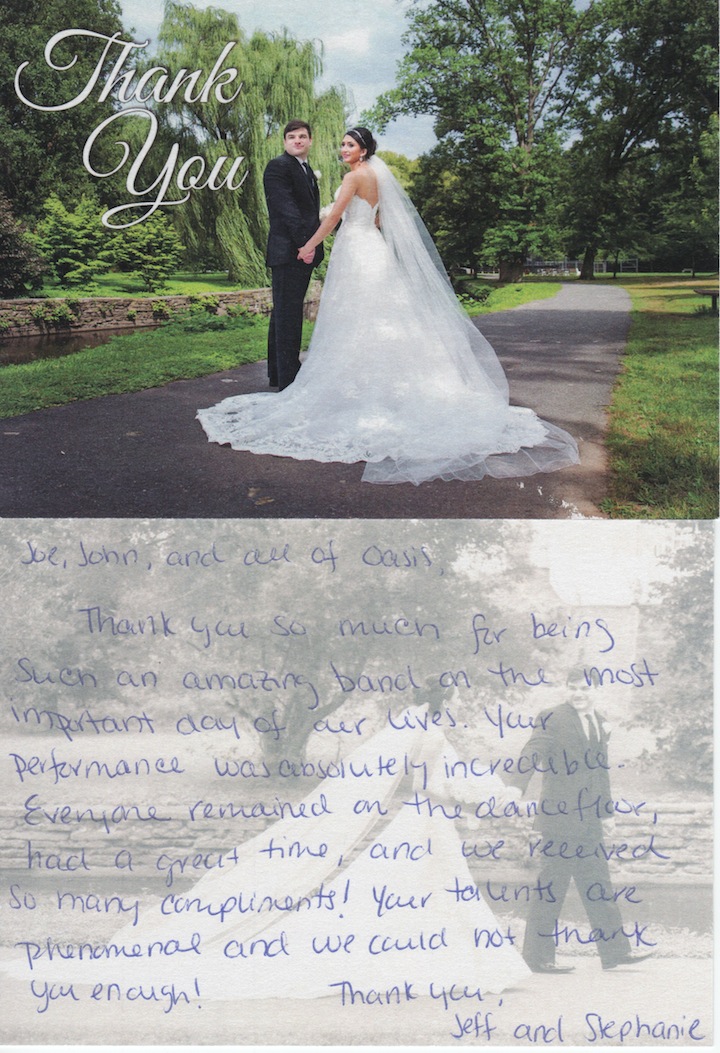 Thank
You
Joe, John, and all of Oasis,
Thank you so much for being
such an amazing band on the most
important day of our lives. Your
performance was absolutely incredible.
Everyone remained on the dancefloor,
had a great time, and we received
so many compliments! Your talents are
phenomenal and we could not thank
you enough! Thank you,
Jeff and Stephanie